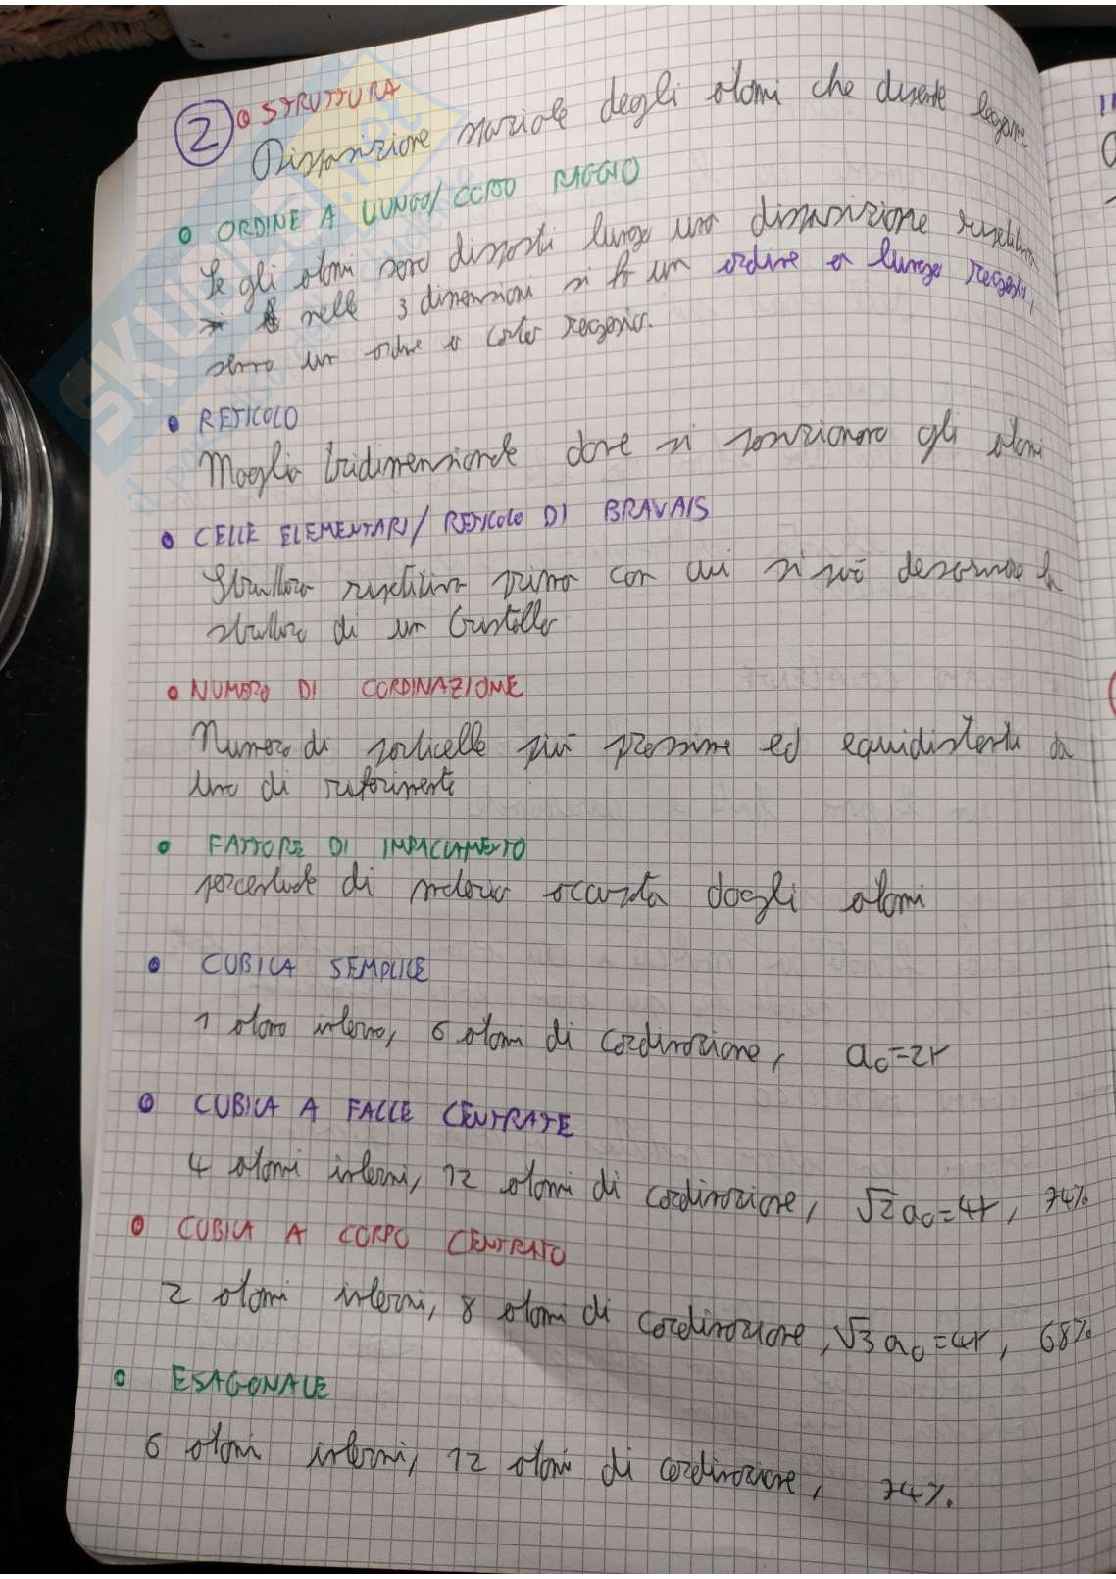 2
STRUTTURA
Disposizione spaziale degli atomi che durante legame
ORDINE A LUNGO/CORTO RAGGIO
Se gli atomi sono disposti lungo una disposizione ripetitiva
nelle 3 dimensioni si ha un ordine a lungo raggio,
senno un ordine a corto raggio.
RETICOLO
Maglia tridimensionale dove si posizionano gli atomi
CELLE ELEMENTARI/RETICOLO DI BRAVAIS
Struttura ripetitiva prima con cui si può descrivere la
struttura di un Cristallo
NUMERO DI CORDINAZIONE
Numero di particelle più prossime ed equidistanti da
una di riferimento
FATTORE DI IMPACCAMENTO
percentuale di materia occupata dagli atomi
CUBICA SEMPLICE
1 atomo interno, 6 atomi di cordinazione, a₀=2r
CUBICA A FACCE CENTRATE
4 atomi interni, 12 atomi di cordinazione, √2 a₀=4r, 74%
CUBICA A CORPO CENTRATO
2 atomi interni, 8 atomi di cordinazione, √3 a₀=4r, 68%
ESAGONALE
6 atomi interni, 12 atomi di cordinazione, 74%.